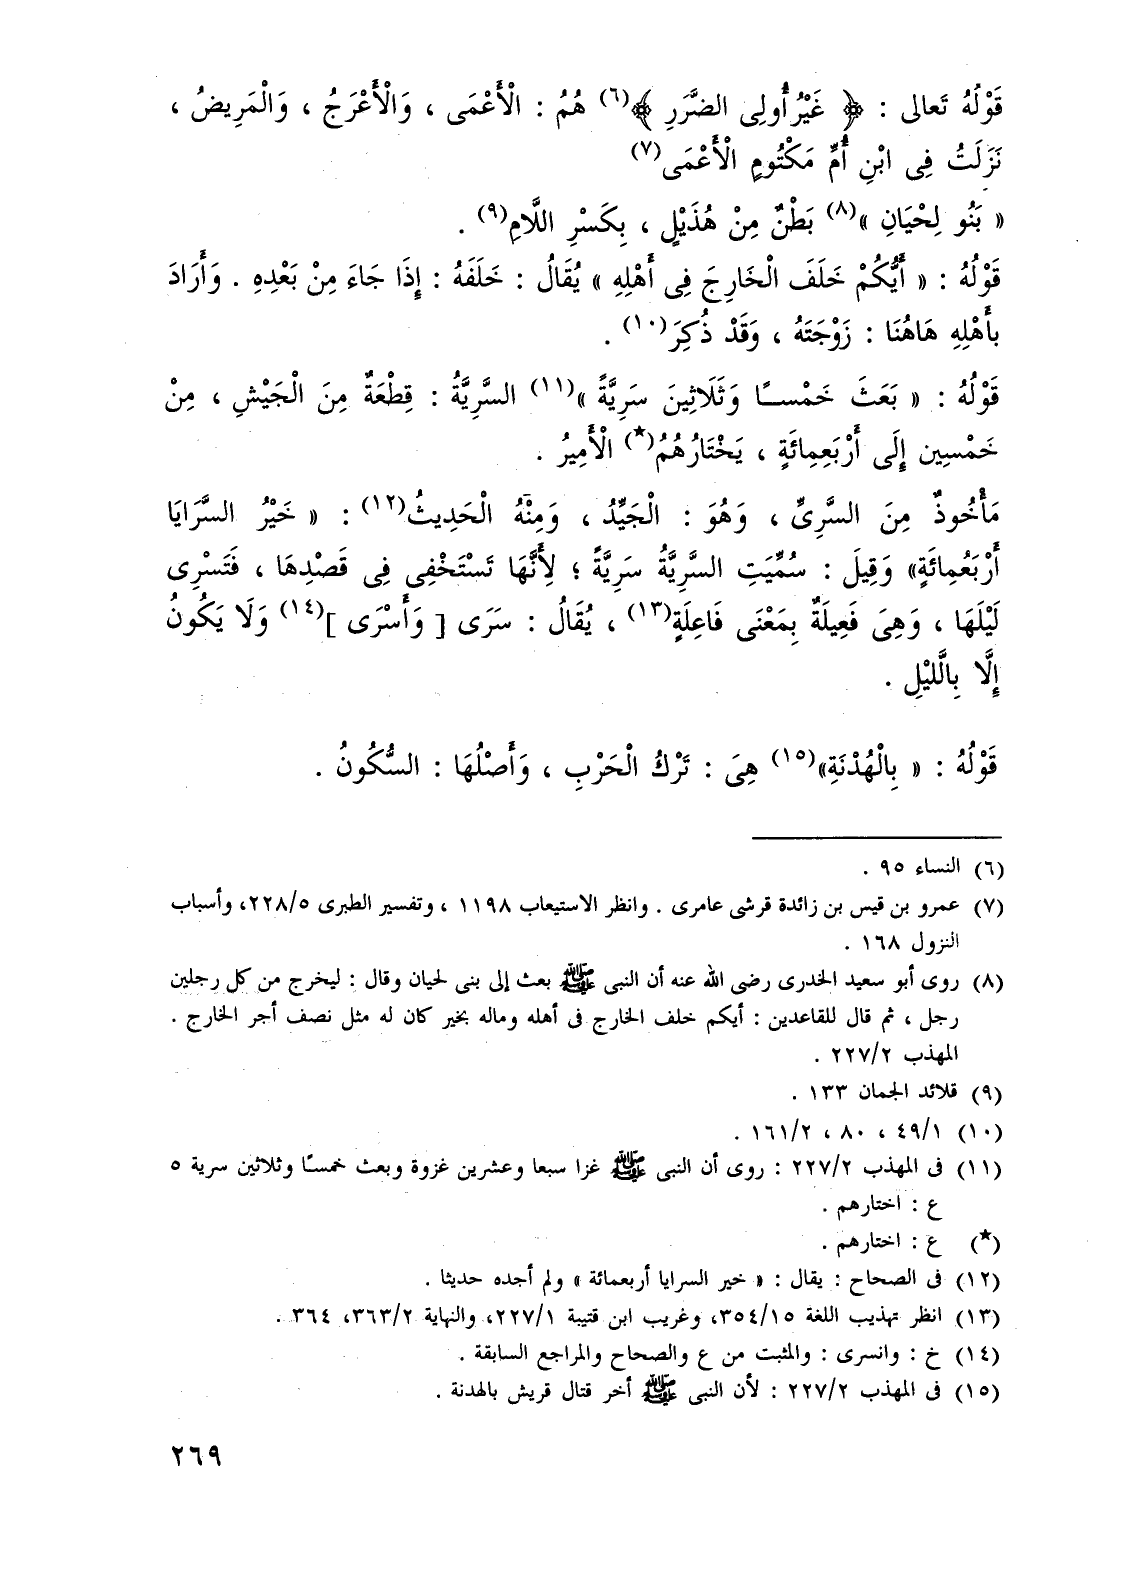 قَوْلُهُ تَعالى : ﴿ غَيْرُ أُولِى الضَّرَرِ ﴾(٦) هُمُ : الْأَعْمَى ، وَالْأَعْرَجُ ، وَالْمَرِيضُ ،
نَزَلَتْ فِى ابْنِ أُمِّ مَكْتُومٍ الْأَعْمَى(٧)
« بَنُو لِحْيَانِ »(٨) بَطْنٌ مِنْ هُذَيْلٍ ، بِكَسْرِ اللَّامِ(٩) .
قَوْلُهُ : « أَيُّكُمْ خَلَفَ الْخَارِجَ فِى أَهْلِهِ » يُقَالُ : خَلَفَهُ : إِذَا جَاءَ مِنْ بَعْدِهِ . وَأَرَادَ
بأَهْلِهِ هَاهُنَا : زَوْجَتَهُ ، وَقَدْ ذُكِرَ(١٠) .
قَوْلُهُ : « بَعَثَ خَمْسـًا وَثَلَاثِينَ سَرِيَّةً »(١١) السَّرِيَّةُ : قِطْعَةٌ مِنَ الْجَيْشِ ، مِنْ
خَمْسِين إِلَى أَرْبَعِمِائَةٍ ، يَخْتَارُهُمُ(★) الْأَمِيرُ .
مَأْخُوذٌ مِنَ السَّرِىِّ ، وَهُوَ : الْجَيِّدُ ، وَمِنْهُ الْحَدِيثُ(١٢) : « خَيْرُ السَّرَايَا
أَرْبَعُمِائَةٍ» وَقِيلَ : سُمِّيَتِ السَّرِيَّةُ سَرِيَّةً ؛ لِأَنَّهَا تَسْتَخْفِى فِى قَصْدِهَا ، فَتَسْرِى
لَيْلَهَا ، وَهِىَ فَعِيلَةٌ بِمَعْنَى فَاعِلَةٍ(١٣) ، يُقَالُ : سَرَى [ وَأَسْرَى ](١٤) وَلَا يَكُونُ
إِلَّا بِالَّليْلِ .
قَوْلُهُ : « بِالْهُدْنَةِ»(١٥) هِىَ : تَرْكُ الْحَرْبِ ، وَأَصْلُهَا : السُّكُونُ .
(٦) النساء ٩٥ .
(٧) عمرو بن قيس بن زائدة قرشى عامرى . وانظر الاستيعاب ١١٩٨ ، وتفسير الطبرى ٢٢٨/٥، وأسباب
النزول ١٦٨ .
(٨) روى أبو سعيد الخدرى رضى الله عنه أن النبى ﷺ بعث إلى بنى لحيان وقال : ليخرج من كل رجلين
رجل ، ثم قال للقاعدين : أيكم خلف الخارج فى أهله وماله بخير كان له مثل نصف أجر الخارج .
المهذب ٢٢٧/٢ .
(٩) قلائد الجمان ١٣٣ .
(١٠) ٤٩/١ ، ٨٠ ، ١٦١/٢ .
(١١) فى المهذب ٢٢٧/٢ : روى أن النبى ﷺ غزا سبعا وعشرين غزوة وبعث خمسًا وثلاثين سرية ٥
ع : اختارهم .
(★) ع : اختارهم .
(١٢) فى الصحاح : يقال : « خير السرايا أربعمائة » ولم أجده حديثا .
(١٣) انظر تهذيب اللغة ٣٥٤/١٥، وغريب ابن قتيبة ٢٢٧/١، والنهاية ٣٦٣/٢، ٣٦٤ .
(١٤) خ : وانسرى : والمثبت من ع والصحاح والمراجع السابقة .
(١٥) فى المهذب ٢٢٧/٢ : لأن النبى ﷺ أخر قتال قريش بالهدنة .
٢٦٩